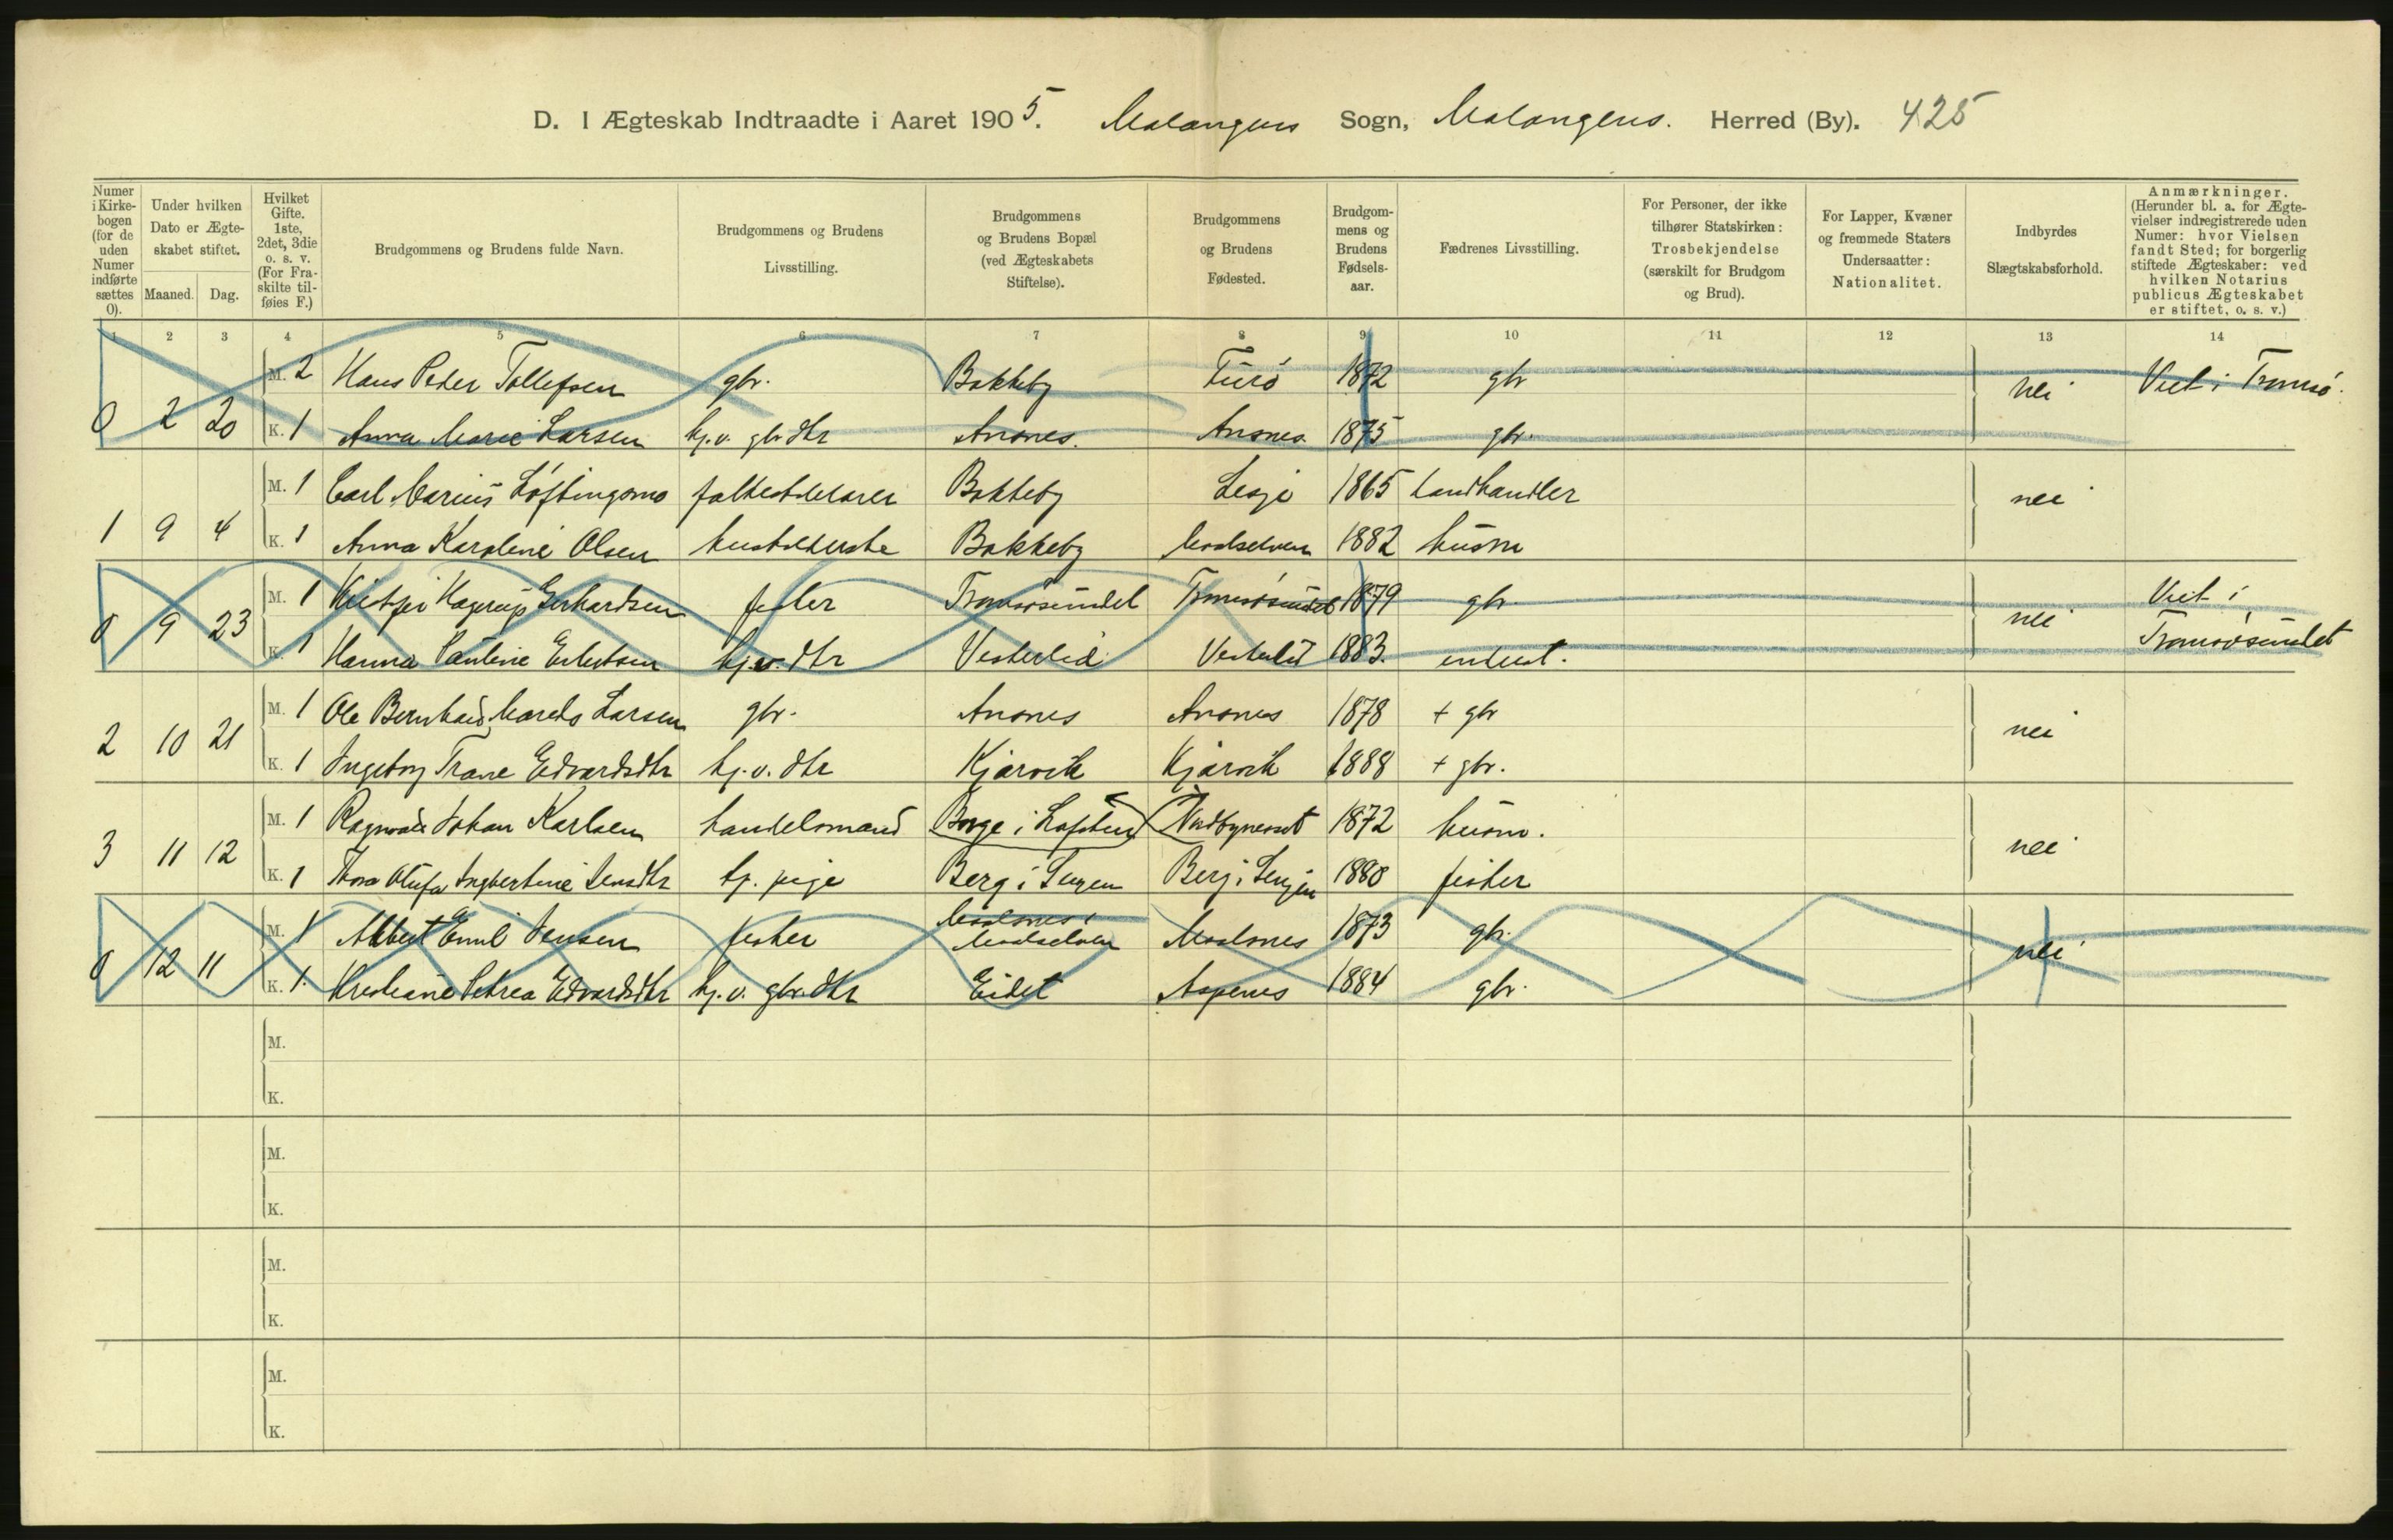 D. I Ægteskab Indtraadte i Aaret 1905. Malangens Sogn, Malangens. Herred (By). 425
Numer i Kirkebogen (for de uden Numer indførte sættes 0).
Under hvilken Dato er Ægteskabet stiftet.
Maaned. Dag.
Hvilket Gifte. 1ste, 2det, 3die o. s. v. (For Fraskilte tilføies F.)
Brudgommens og Brudens fulde Navn.
Brudgommens og Brudens Livsstilling.
Brudgommens og Brudens Bopæl (ved Ægteskabets Stiftelse).
Brudgommens og Brudens Fødested.
Brudgommens og Brudens Fødselsaar.
Fædrenes Livsstilling.
For Personer, der ikke tilhører Statskirken: Trosbekjendelse (særskilt for Brudgom og Brud).
For Lapper, Kvæner og fremmede Staters Undersaatter: Nationalitet.
Indbyrdes Slægtskabsforhold.
Anmærkninger. (Herunder bl. a. for Ægtevielser indregistrerede uden Numer: hvor Vielsen fandt Sted; for borgerlig stiftede Ægteskaber: ved hvilken Notarius publicus Ægteskabet er stiftet, o. s. v.)
1 2 3 4 5 6 7 8 9 10 11 12 13 14
M. 2 Hans Peder Tollefsen gbr. Bakkeby 1872 gbr nei Viet i Tromsø.
0 2 20 K. 1 Anna Marie Larsen hj. v. gbr dtr Ansnes. Ansnes. 1875 gbr.
M. 1 Carl Marius Løftingsmo Bakkeby Lesje 1865 Landhandler nei
1 9 4 K. 1 Anna Karoline Olsen husholderske Bakkeby Maalselven 1882 husm
M. 1 Hagerup Gerhardsen fisker Tromsøsundet Tromsøsundet 1879 gbr. nei Viet i
0 9 23 K. 1 Hanna Pauline hj. v. dtr Vesterlid Vesterlid 1883. Tromsøsundet
M. 1 Ole Bernhard Mareds Larsen gbr. Ansnes Ansnes 1878 + gbr nei
2 10 21 K. 1 Ingeborg Trane Edvardsdtr hj. v. dtr Kjærvik Kjærvik 1888 + gbr.
M. 1 Ragnvald Johan Karlsen handelsmand Borge i Lofoten 1872 husm. nei
3 11 12 K. 1 Thora Olufa Ingbertine Jensdtr tj. pige Berg i Senjen Berg i Senjen 1880 fisker
M. 1 Albert Emil Jensen fisker Maalsnes i Maalselven Maalsnes 1873 gbr. nei
0 12 11 K. 1. Kristiane Petrea Edvardsdtr hj. v. gbr. dtr Eidet Aspenes 1884 gbr.
M.
K.
M.
K.
M.
K.
M.
K.